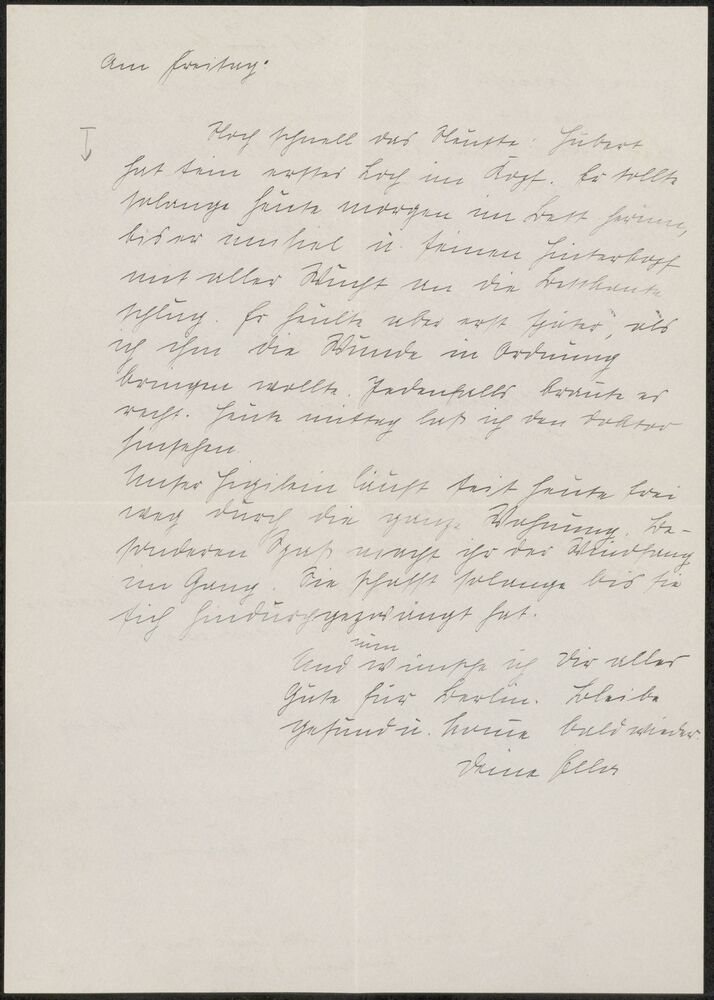 Am Freitag.
Noch schnell das Neuste: Hubert
hat sein erstes Loch im Kopf. Er tollte
solange heute morgen im Bett herum,
bis er umfiel u. seinen Hinterkopf
mit aller Wucht an die Bettkante
schlug. Er heulte aber erst später, als
ich ihm die Wunde in Ordnung
bringen wollte. Jedenfalls braute es
recht. Heute mittag laß ich den Doktor
hinsehen.
Unser läuft seit heute frei
weg durch die ganze Wohnung. Be-
sonderen Spaß macht ihr der Windfang
im Gang. Sie schafft solange bis sie
sich hindurchgezwängt hat.
Und nun wünsche ich Dir alles
Gute für Berlin. Bleibe
gesund u. komme bald wieder.
Deine